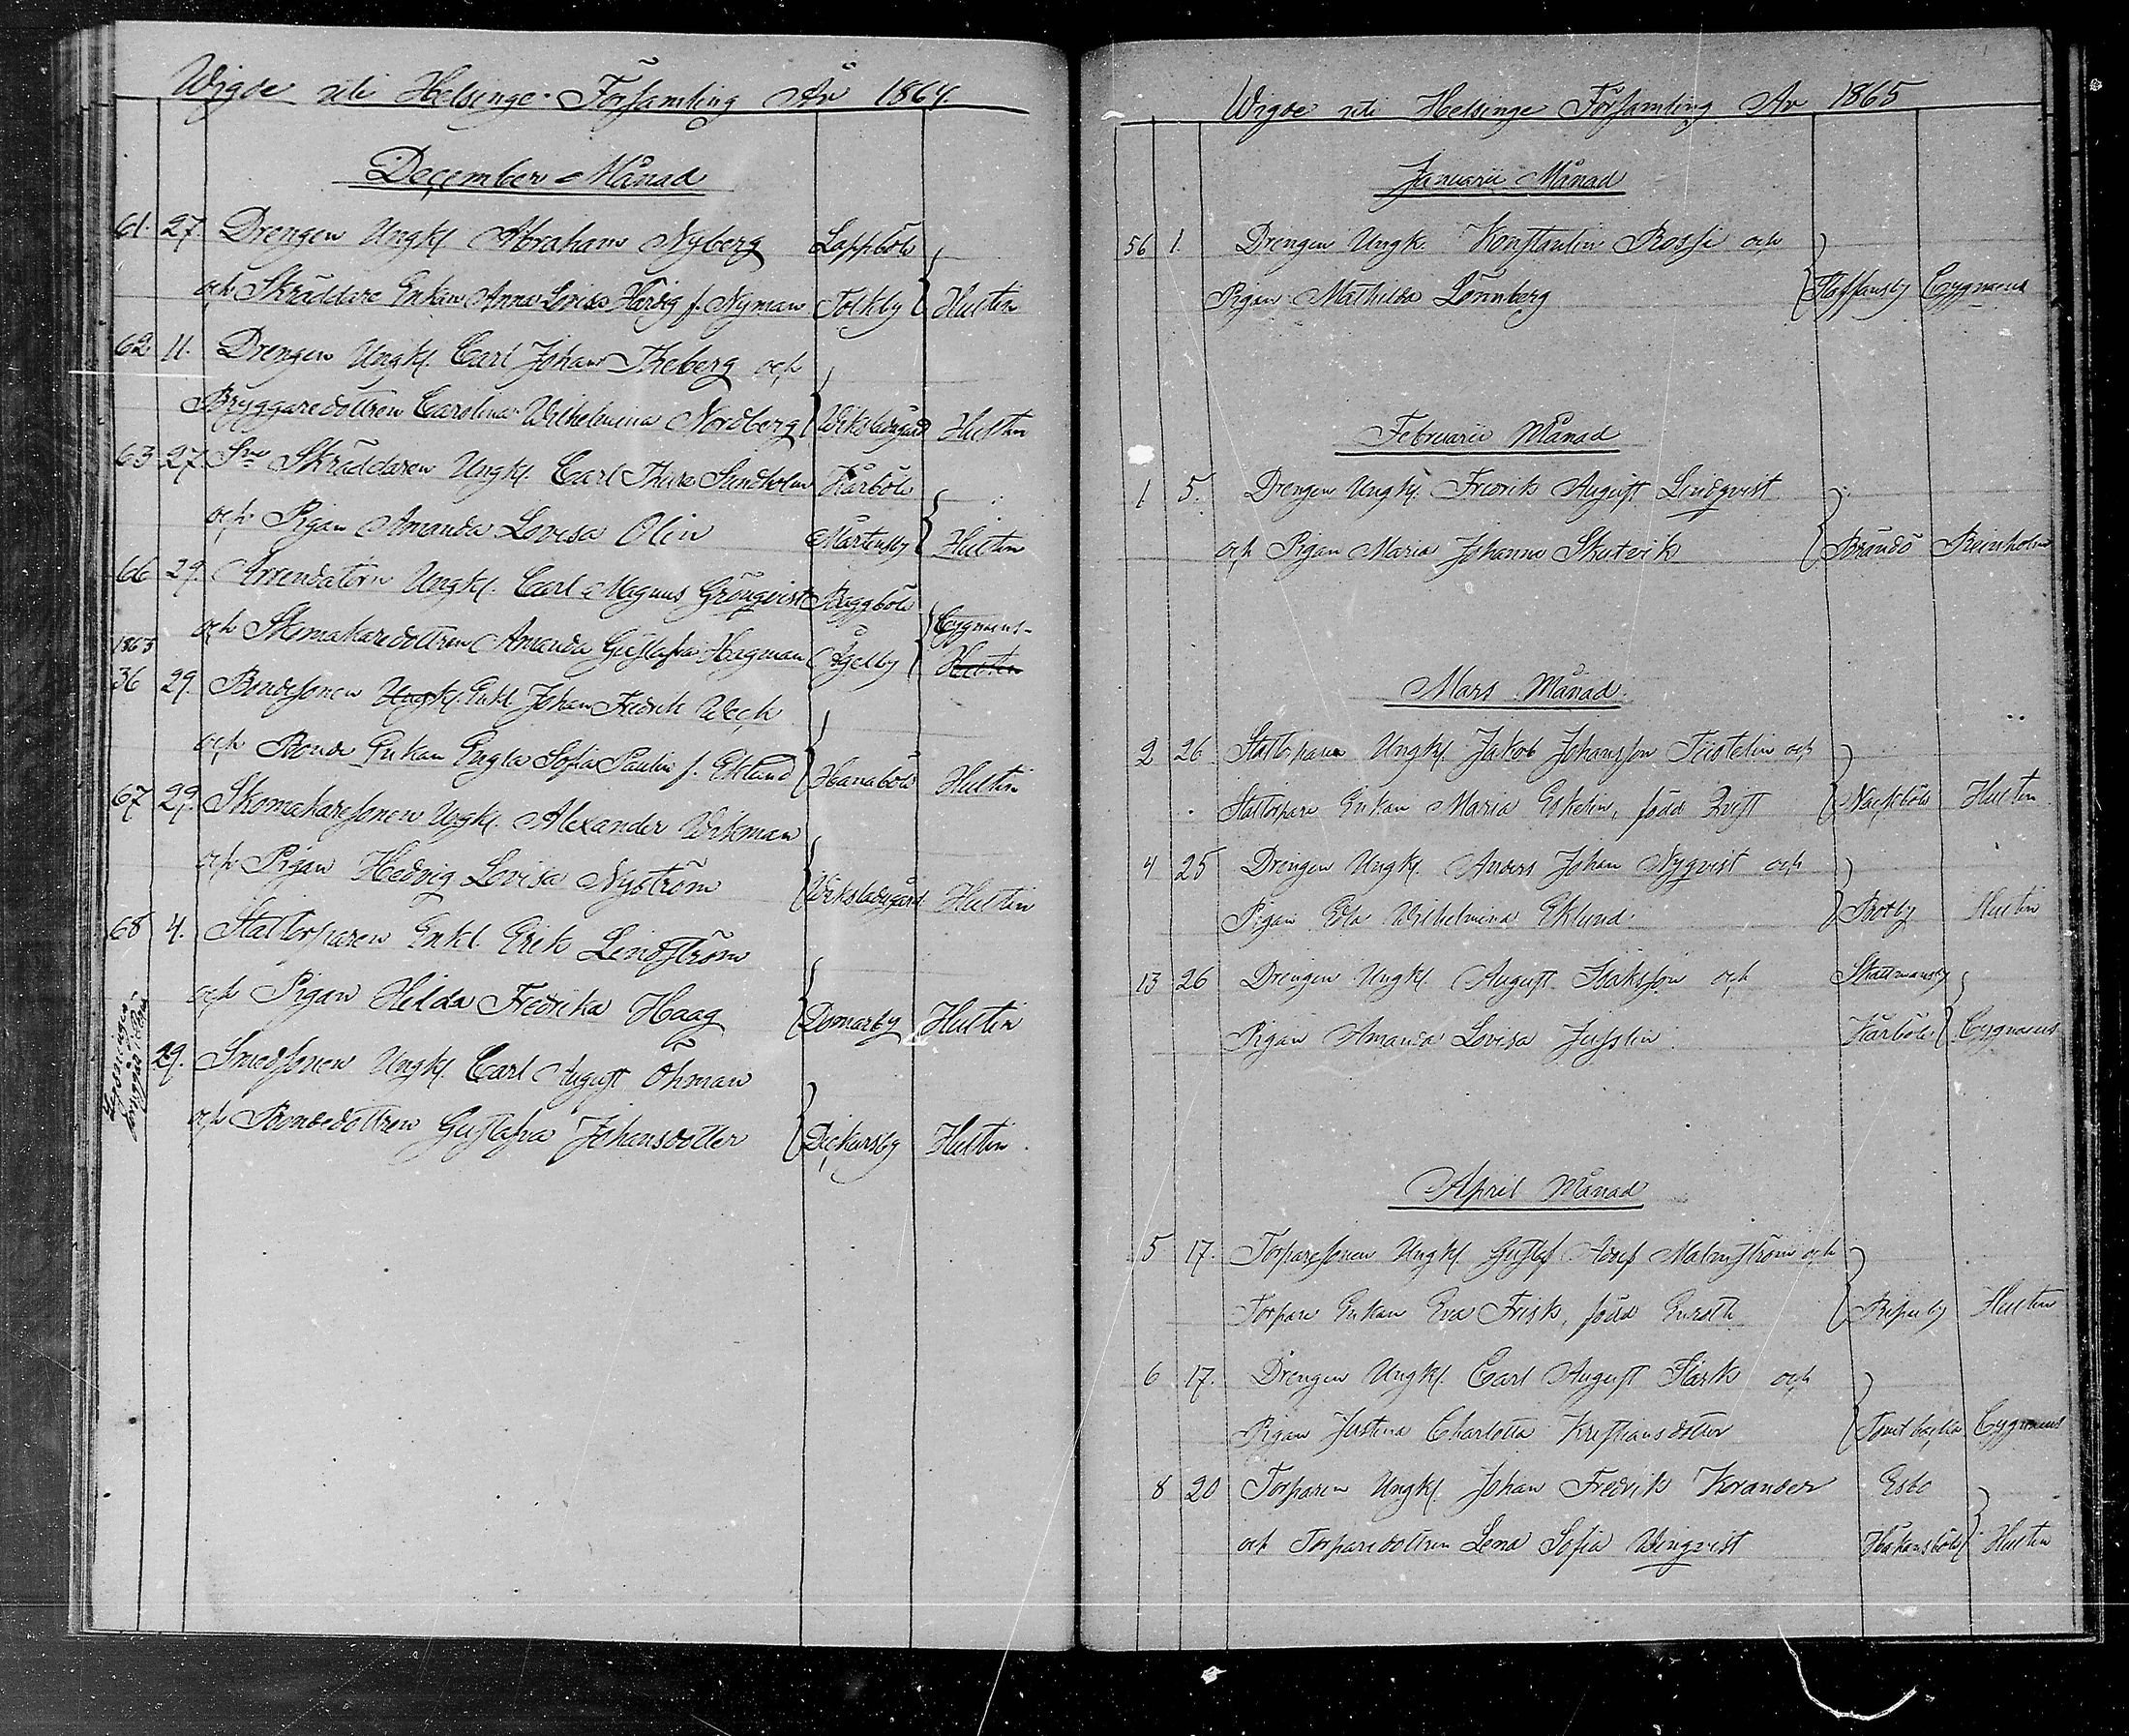 Wigde uti Helsinge Församling År 1864.
December Månad
61. 27. Drengen Ungk. Abraham Nyberg Lappböle
och Skräddare Enkan Anna Lovisa Hårdig f. Nyman Tolkby Hultin
62 11. Drengen Ungk. Carl Johan Theberg och
Bryggaredottren Carolina Wilhelmina Nordberg Wiksladugård Hultin
63 27. Skräddaren Ungk. Carl Thure Sundholm Kårböle
och Pigan Amanda Lovisa Olin Mårtensby Hultin
66 29. Arrendatorn Ungk. Carl Magnus Grönqvist Baggböle Cygnæus
och Skomakaredottren Amanda Gustafva Hagman Ågelby Hultin
1863
36 29. Bondesonen Ungk. Enkl. Johan Fredrik Weck
och Bonde Enkan Engla Sofia Paulin f. Eklund Hanaböle Hultin
67 29. Skomakaresonen Ungk. Alexander Wikman
och Pigan Hedvig Lovisa Nyström Wiksladugård Hultin
68 4. Stattorparen Enkl. Erik Lindström
och Pigan Hilda Fredrika Haag Domarby Hultin
Lysningen
29. Smedsonen Ungk. Carl August Öhman
och Bondedottren Gustafva Johansdotter Dickursby Hultin
Wigde uti Helsinge Församling År 1865
Januarii Månad
56 1. Drengen Ungk. Konstantin Rosse och
Pigan Mathilda Lönnberg Staffansby Cygnæus
Februarii Månad
1 5. Drengen Ungk. Fredrik August Lindqvist
och Pigan Maria Johanna Skutvik Brändö Reinholm
Mars Månad
2 26 Stattorparen Ungk. Jakob Johansson och
Stattorpare Enkan Maria Eskelin, född Qvist Nackböle Hultin
4 25 Drengen Ungk. Anders Johan Nyqvist och
Pigan Eda Wilhelmina Eklund Botby Hultin
13 26 Drengen Ungk. August Isaksson och Skattmansby
Pigan Amanda Lovisa Jusslin Kårböle Cygnæus
April Månad
5 17. Torparesonen Ungk. Gustaf Adolf Malmström och
Torpare Enkan Eva Frisk, född Enroth Ripuby Hultin
6 17. Drengen Ungk. Carl August Stark och
Pigan Justina Charlotta Kristiansdotter Tomtbacka Cygnæus
8 20 Torparen Ungk. Johan Fredrik Korander Esbo
och Torparedottren Lena Sofia Winqvist Håkansböle Hultin